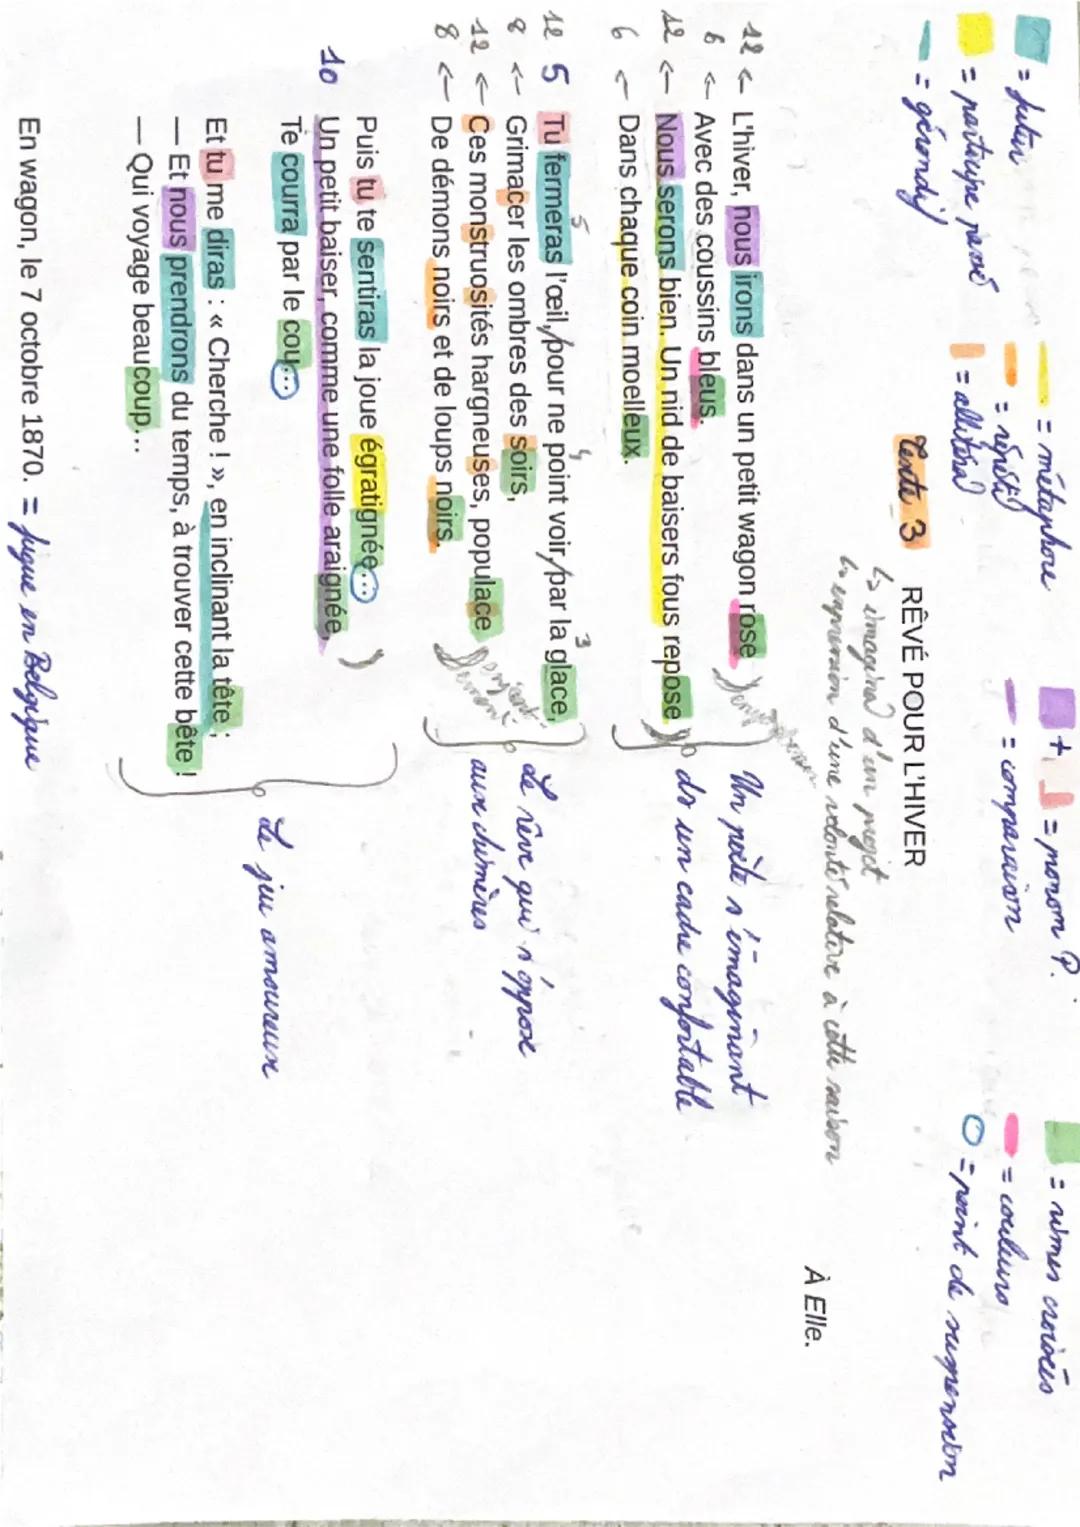 = futur
= métaphore
+ = pronom P.
= rimes croisées
= participe passé
= répéti°
= comparaison
= couleurs
= gérondif
= allitéra°
= point de suspension
Texte 3
RÊVÉ POUR L'HIVER
↳ imagina° d'un projet
↳ expression d'une volonté relative à cette saison
À Elle.
12 ← L'hiver, nous irons dans un petit wagon rose
6 ← Avec des coussins bleus.
12 ← Nous serons bien. Un nid de baisers fous repose
6 ← Dans chaque coin moelleux.
Un poète s'imaginant
ds un cadre confortable
12 5 Tu fermeras l'œil, / pour ne point voir, / par la glace,
5 4 3
8 ← Grimacer les ombres des soirs,
12 ← Ces monstruosités hargneuses, populace
8 ← De démons noirs et de loups noirs.
Le rêve qui s'oppose
aux chimères
Puis tu te sentiras la joue égratignée...
10 Un petit baiser, comme une folle araignée,
Te courra par le cou...
Et tu me diras : « Cherche ! », en inclinant la tête ;
— Et nous prendrons du temps, à trouver cette bête !
— Qui voyage beaucoup...
Le jeu amoureux
En wagon, le 7 octobre 1870. = fugue en Belgique